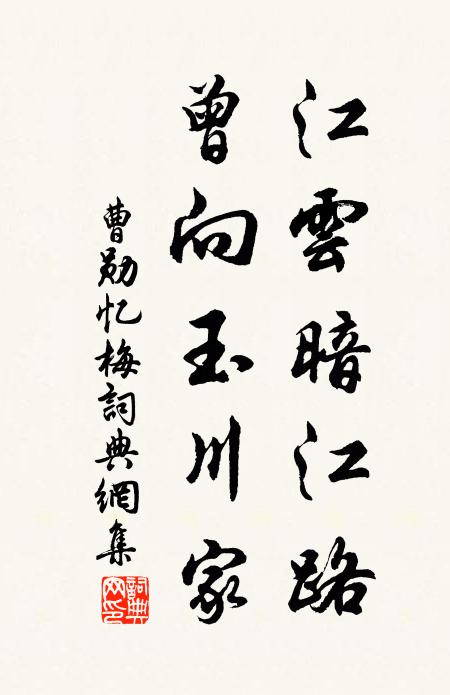 江雲暗江路
曾向玉川家
曹勋忆梅詞典網集
詞典網印